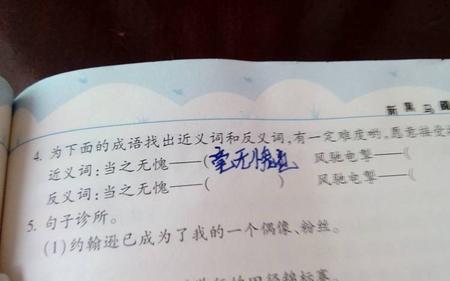 新黑马阅
4. 为下面的成语找出近义词和反义词,有一定难度哟,愿意接受
近义词:当之无愧——(毫无愧色 风驰电掣——(
反义词:当之无愧——( ) 风驰电掣——(
5. 句子诊所。
(1)约翰逊已成为了我的一个偶像、粉丝。
的田径锦标赛。